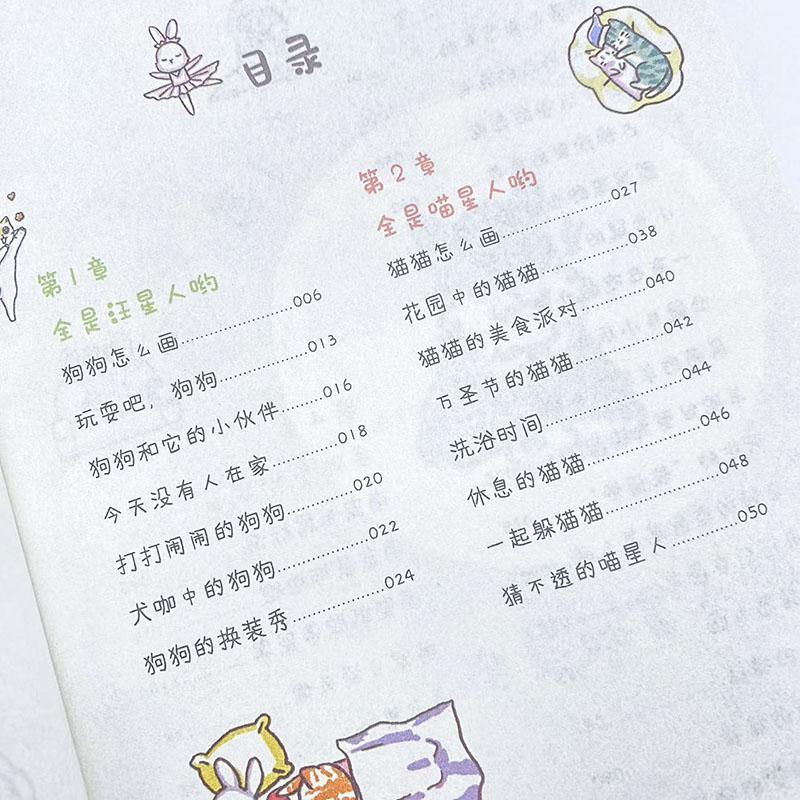 目录
第1章
全是汪星人哟
狗狗怎么画..................006
玩耍吧，狗狗...............013
狗狗和它的小伙伴.......016
今天没有人在家...........018
打打闹闹的狗狗...........020
犬咖中的狗狗...............022
狗狗的换装秀...............024
第2章
全是喵星人哟
猫猫怎么画..................027
花园中的猫猫...............038
猫猫的美食派对...........040
万圣节的猫猫...............042
洗浴时间......................044
休息的猫猫..................046
一起躲猫猫..................048
猜不透的喵星人...........050